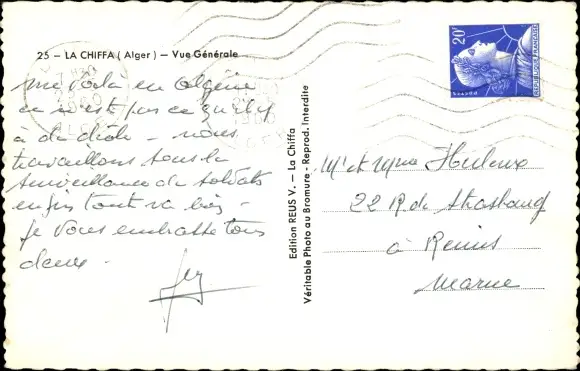 25 — LA CHIFFA ( Alger ) — Vue Générale
me voilà en Algérie
ce n'est pas ce qu'il y
a de drôle - nous
travaillons sous la
surveillance de soldats
enfin tout va bien -
je vous embrasse tous
deux -
Edition REUS V. — La Chiffa
Véritable Photo au Bromure - Reprod. Interdite
20F
Mr et Mme Huleux
22 R. de Strasbourg
à Reims
Marne